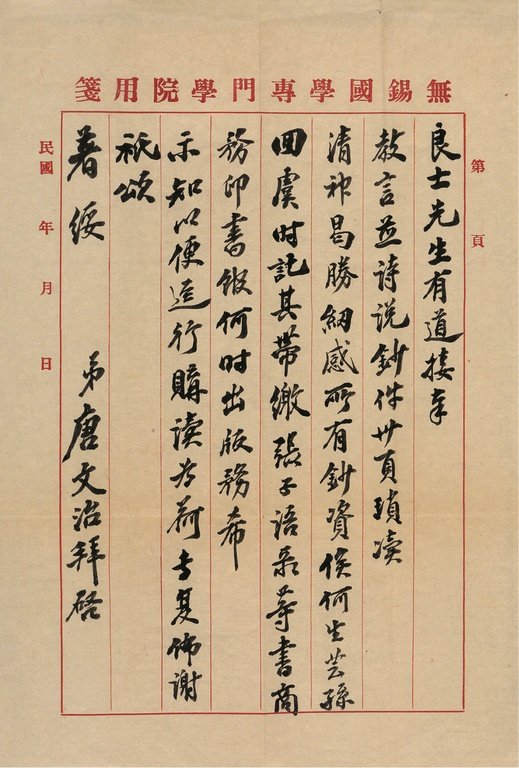 無錫國學專門學院用箋
第 頁
良士先生有道接奉
教言並詩説鈔件卅頁瑣瀆
清神曷勝紉感所有鈔資俟何生芸孫
回虞時託其帶繳張子語录等書商
務印書館何時出版務希
示知以便進行購讀為荷专复佈謝
祗頌
著綏 弟唐文治拜啓
民國 年 月 日